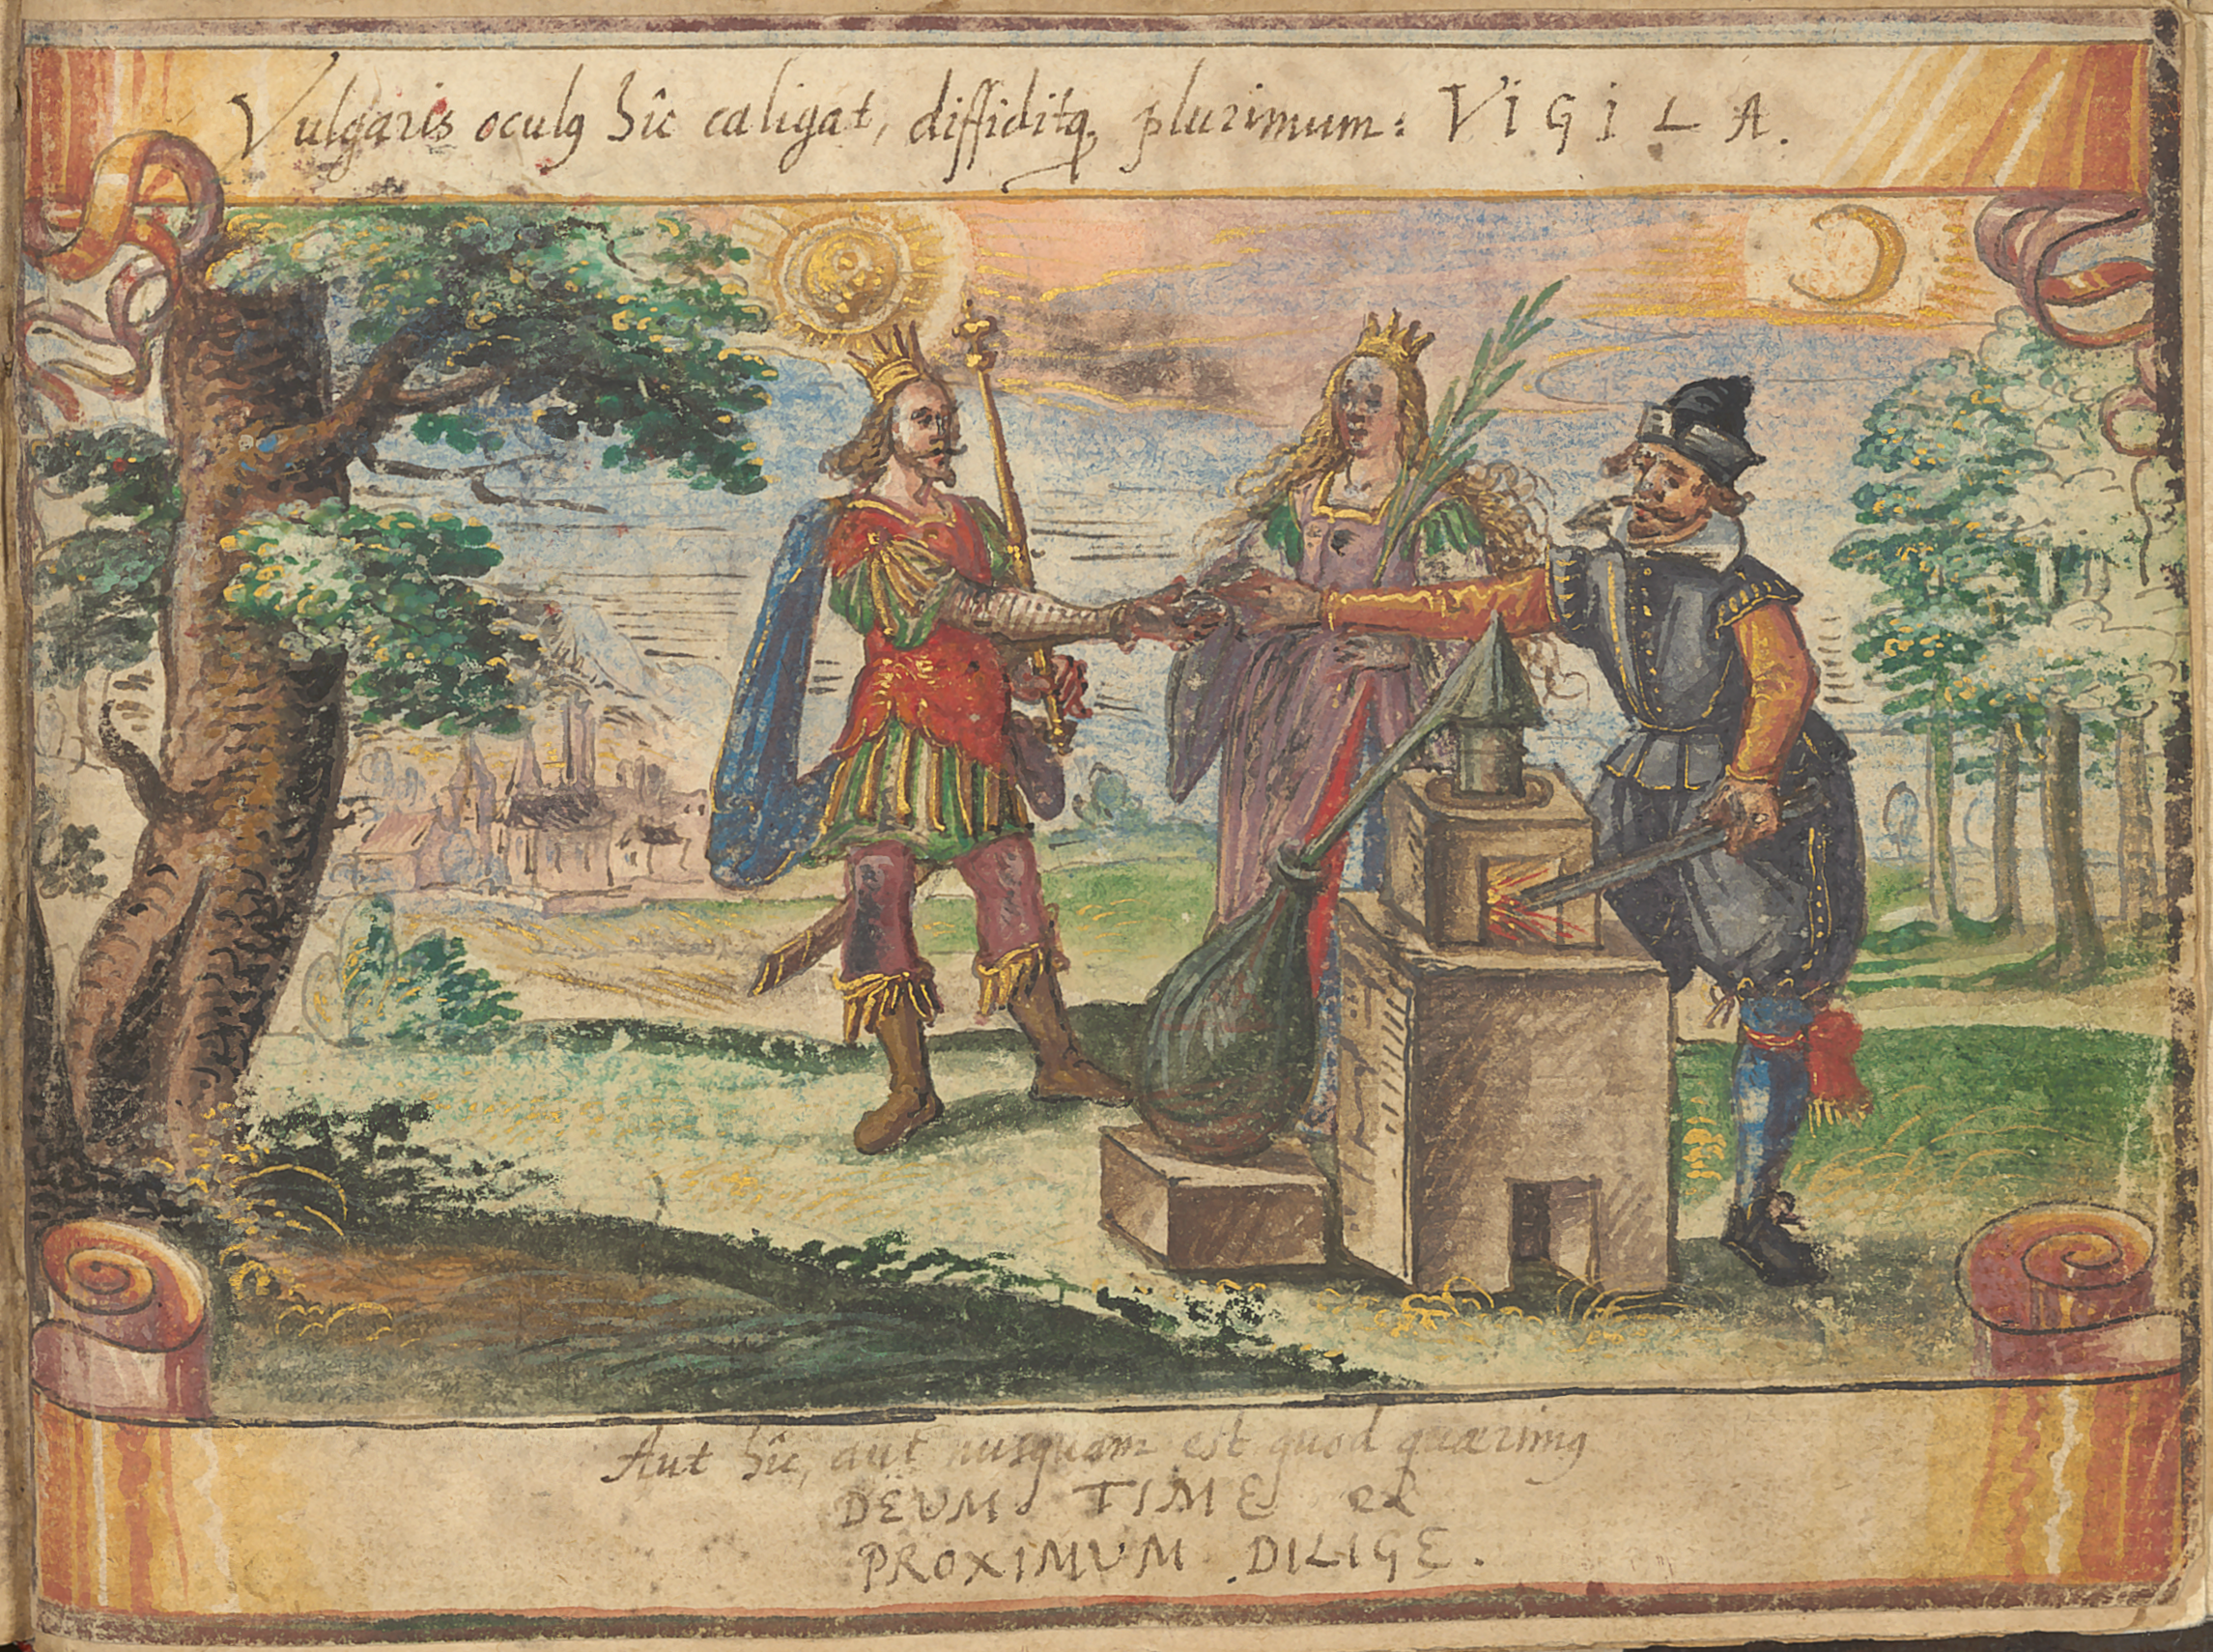 Vulgaris oculꝯ hîc caligat, diffiditqꝫ plurimum: VIGILA.
Aut hîc, aut nusquam est quod quærimꝯ
DEUM TIME &
PROXIMUM DILIGE.